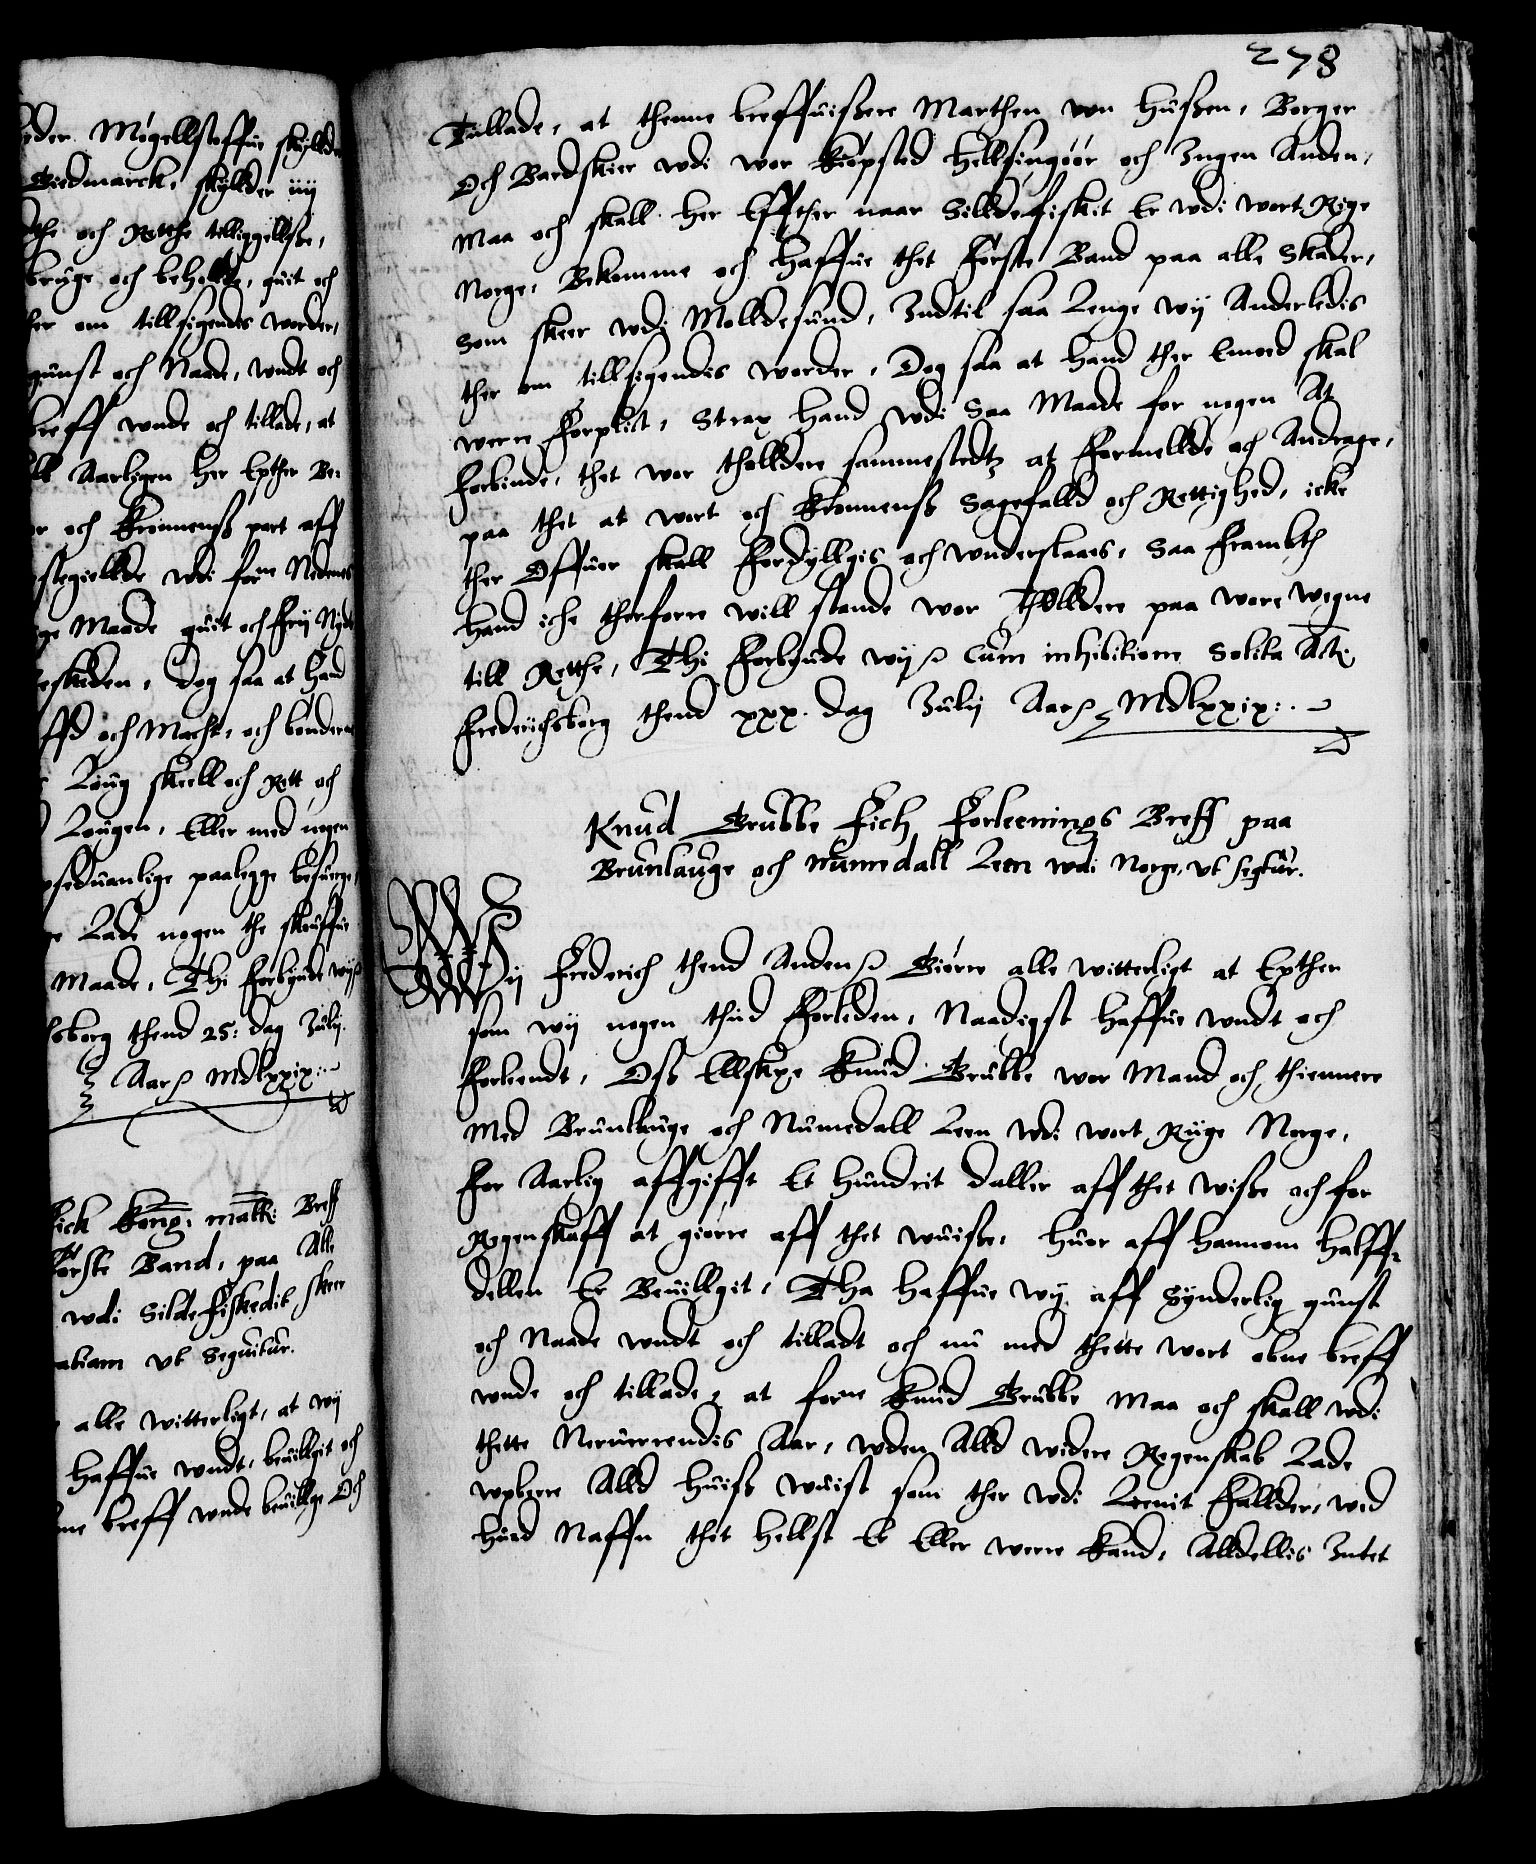 eder Møgellstoffue skyllder
Giedmarck, skyllder iiij
the och Rette tilliggellsse,
bruge och beholde, quit och
ther om tillsigendes worder,
gunst och Naade, wndt och
breff wnde och tillade, at
Aarligen her Epther Be-
or och Kronnenss part aff
wdi forne Nedenes
ge Maade quit och Frij Nyde
Dog saa at Hand
och Macht, och bønderne
Loug skeell och Rett och
Lougen, Eller med nogen
paalegge besuerge,
Lade nogen the skouffue
Maade, Thi Forbyude wij
borg thend 25: dag Julij
Aar MdLxxix:
Fick Kong: matt: Breff
første Band, paa Alle
wdi Silde Fiskedit skeer
vt Sequitur.
alle witterligt, at wij
Haffue wndt, beuillgit och
breff wnde beuillge Och
278
Tillade, at thenne breffuissere Marthen von Hussen, Borger
Och Bardskier wdi wor Kiøpsted Hellsingøør och Ingen Anden,
Maa och skall her Effther naar Silldefiskit Er wdi wort Rige
Norge, Bekomme och Haffue thet Første Band paa alle Skader,
Som skeer wdj Molldesund, Indtil saa Lenge wij Anderledis
ther om tillsigendis worder, Dog saa at Hand ther Emoed skal
were Forplict, Strax Hand wdi Saa Maade for nogen At
Forbinde, thet wor tholldere sammestedtz at Formellde och Andrage,
paa thet at wort och Kronnenss Sagefalld och Rettighed, icke
ther Offuer skall Fordyllgis och wnderslaaes, Saa Frambth
Hand iche therforre will stande wor Tholldere paa wore wegne
till Rette, Thi Forbyude wij Cum inhibitione Solita Act:
Frederichsborg thend xxx. dag Julij Aar MdLxxix:
Knud Grubbe Fich Forleenings Breff paa
Brunlauge och Numedall Leen wdi Norge, vt seqtur.
Wij Frederich thend Anden Giøre alle witterligt at Epther
som wij nogen thiid Forleden, Naadigst Haffue wndt och
Forleendt, Oss Ellskxe Knud Grubbe wor Mand och thiennere
Med Brunlauge och Numedall Leen wdi wort Riige Norge,
For Aarlig affgifft Et Hundrit daller aff thet wisse och for
Regenskaff at giøre aff thet wuisse, huor aff hannom halff-
dellen Er Beuillgit, Tha Haffue wij aff Synderlig gunst
och Naade wndt och tilladt och nu med thette wort obne breff
wnde och tillade, at forne Knud Grubbe Maa och skall wdi
thette Neruerrendis Aar, wden Alld widere Regenskab Lade
wpbere Alld huiss wuist som ther wdi Leenit Fallder, wed
huad Naffn thet hellst Er Eller were Kand, Alldellis Intet